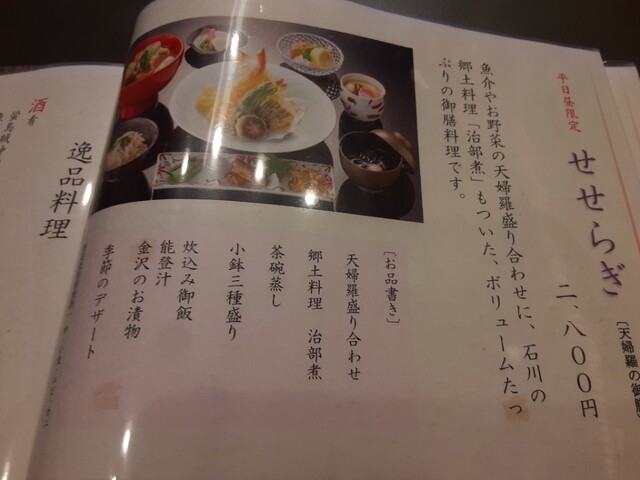 平日昼限定
せせらぎ
〔天婦羅の御膳
二、八〇〇円
魚介やお野菜の天婦羅盛り合わせに、石川の
郷土料理「治部煮」もついた、ボリュームたっ
ぷりの御膳料理です。
〔お品書き〕
天婦羅盛り合わせ
郷土料理 治部煮
茶碗蒸し
小鉢三種盛り
炊込み御飯
能登汁
金沢のお漬物
季節のデザート
逸品料理
酒肴